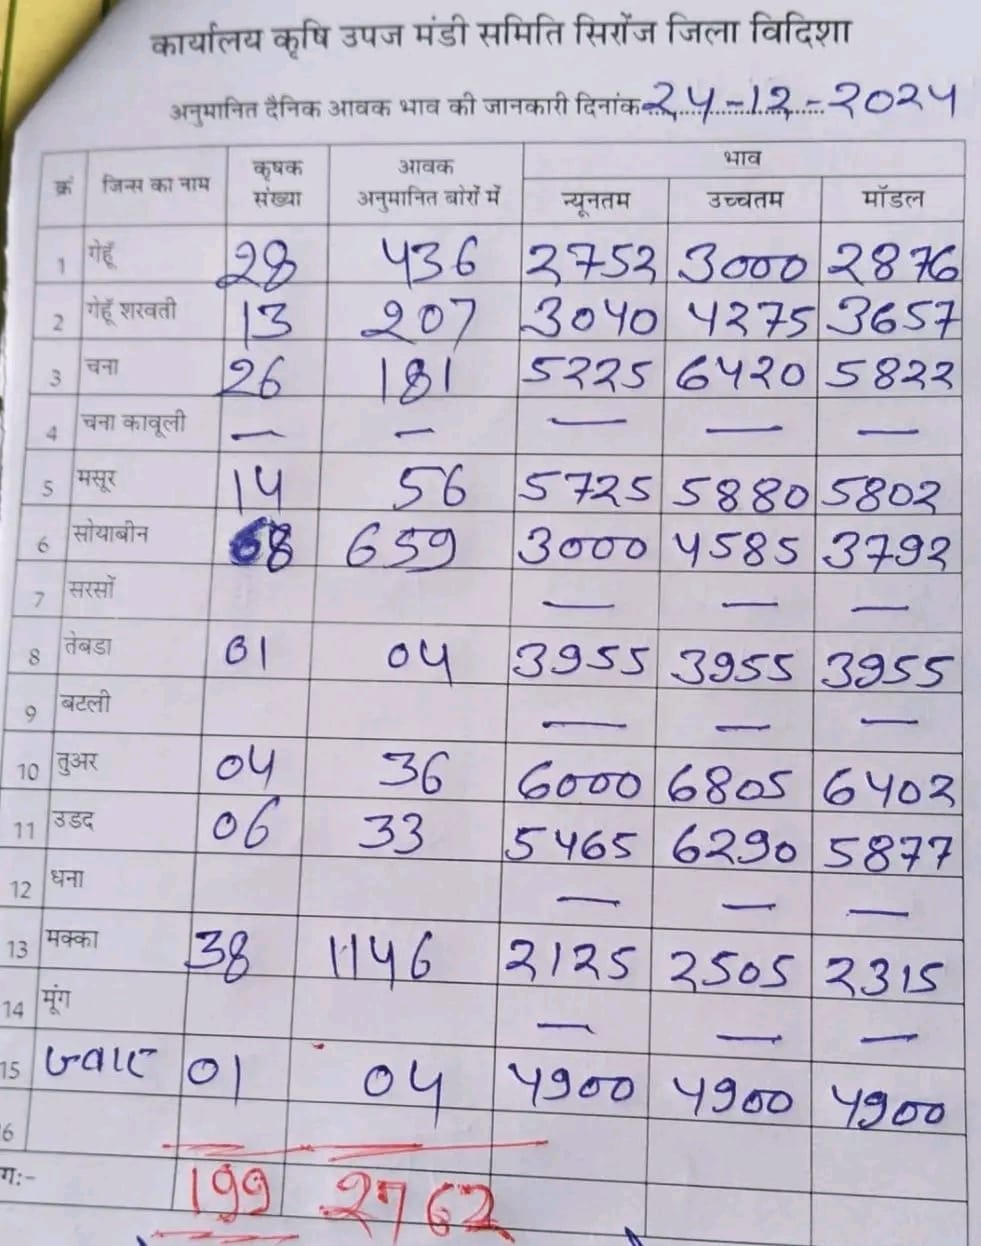 कार्यालय कृषि उपज मंडी समिति सिरोंज जिला विदिशा
अनुमानित दैनिक आवक भाव की जानकारी दिनांक 24-12-2024
क्रं जिन्स का नाम कृषक संख्या आवक अनुमानित बोरों में भाव
न्यूनतम उच्चतम मॉडल
1 गेहूँ 28 436 2752 3000 2876
2 गेहूँ शरवती 13 207 3040 4275 3657
3 चना 26 181 5225 6420 5822
4 चना काबूली — — — — —
5 मसूर 14 56 5725 5880 5802
6 सोयाबीन 68 659 3000 4585 3792
7 सरसों — — —
8 तेबडा 01 04 3955 3955 3955
9 बटली — — —
10 तुअर 04 36 6000 6805 6402
11 उडद 06 33 5465 6290 5877
12 धना — — —
13 मक्का 38 1146 2125 2505 2315
14 मूंग — — —
15 ज्वार 01 04 4900 4900 4900
6
ग:- 199 2762